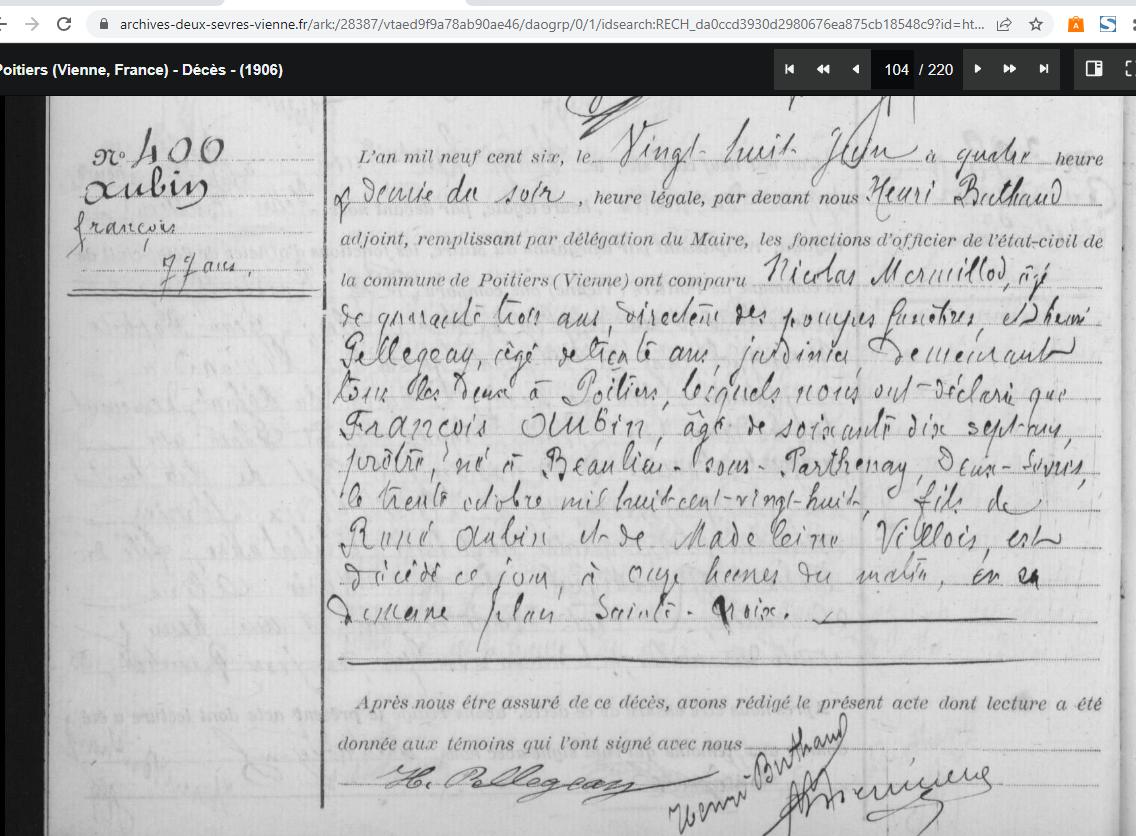 archives-deux-sevres-vienne.fr/ark:/28387/vtaed9f9a78ab90ae46/daogrp/0/1/idsearch:RECH_da0ccd3930d2980676ea875cb18548c9?id=ht...
Poitiers (Vienne, France) - Décès - (1906)
104 / 220
N° 400
Aubin
françois
77 ans.
L'an mil neuf cent six, le Vingt-huit Juin à quatre heure
& demie du soir, heure légale, par devant nous Henri Buthaud
adjoint, remplissant par délégation du Maire, les fonctions d'officier de l'état-civil de
la commune de Poitiers (Vienne) ont comparu Nicolas Mermillod, âgé
de quarante trois ans, directeur des pompes funèbres, et henri
Pellegeay, âgé de trente ans, jardinier demeurant
tous les deux à Poitiers, lesquels nous ont déclaré que
François Aubin, âgé de soixante dix sept ans,
prêtre, né à Beaulieu-sous-Parthenay, Deux-Sèvres,
le trente octobre mil huit-cent-vingt-huit, fils de
René Aubin et de Madeleine Villois, est
décédé ce jour, à onze heures du matin, en sa
demeure plan Sainte-Croix.
Après nous être assuré de ce décès, avons rédigé le présent acte dont lecture a été
donnée aux témoins qui l'ont signé avec nous
H. Pellegeay
Henri Buthaud